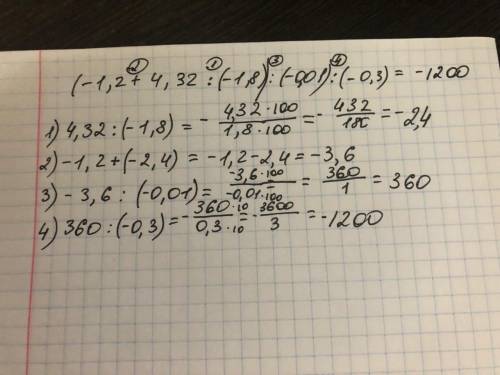 ② ① ③ ④
(-1,2 + 4,32 : (-1,8)) : (-0,01) : (-0,3) = -1200
1) 4,32 : (-1,8) = - 4,32·100 / 1,8·100 = - 432 / 180 = -2,4
2) -1,2+(-2,4) = -1,2-2,4 = -3,6
3) -3,6 : (-0,01) = -3,6·100 / -0,01·100 = 360 / 1 = 360
4) 360 : (-0,3) = - 360·10 / 0,3·10 = - 3600 / 3 = -1200